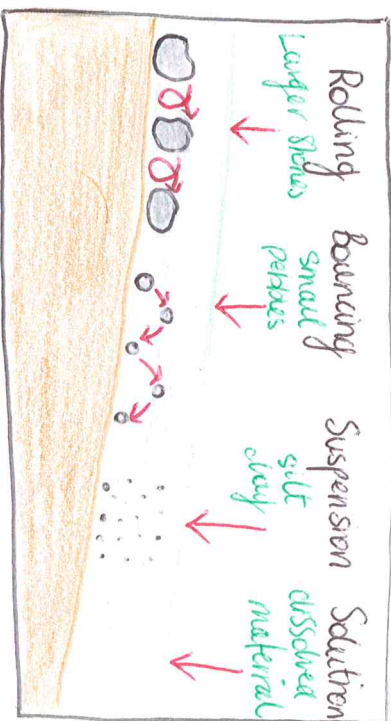 Rolling
Larger stones
Bouncing
small
pebbles
Suspension
silt
clay
Solution
dissolved
material